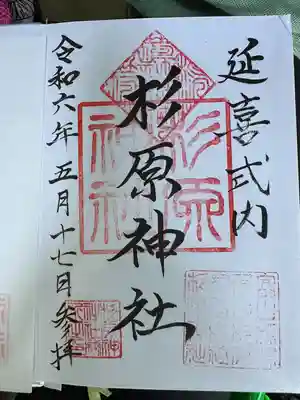 延喜式内
杉原神社
令和六年五月十七日参拝
杉原神社